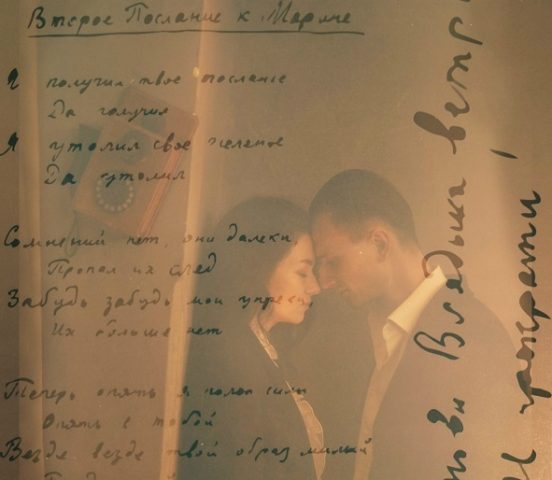 Второе Послание к Марине
Я получил твое послание
Да получил
Я утолил свое желание
Да утолил
Сомнений нет, они далеки,
Пропал их след
Забудь забудь мои упреки
Их больше нет
Теперь опять я полон силы
Опять с тобой
Везде везде твой образ милый
Владыка ветр
И прекрати,